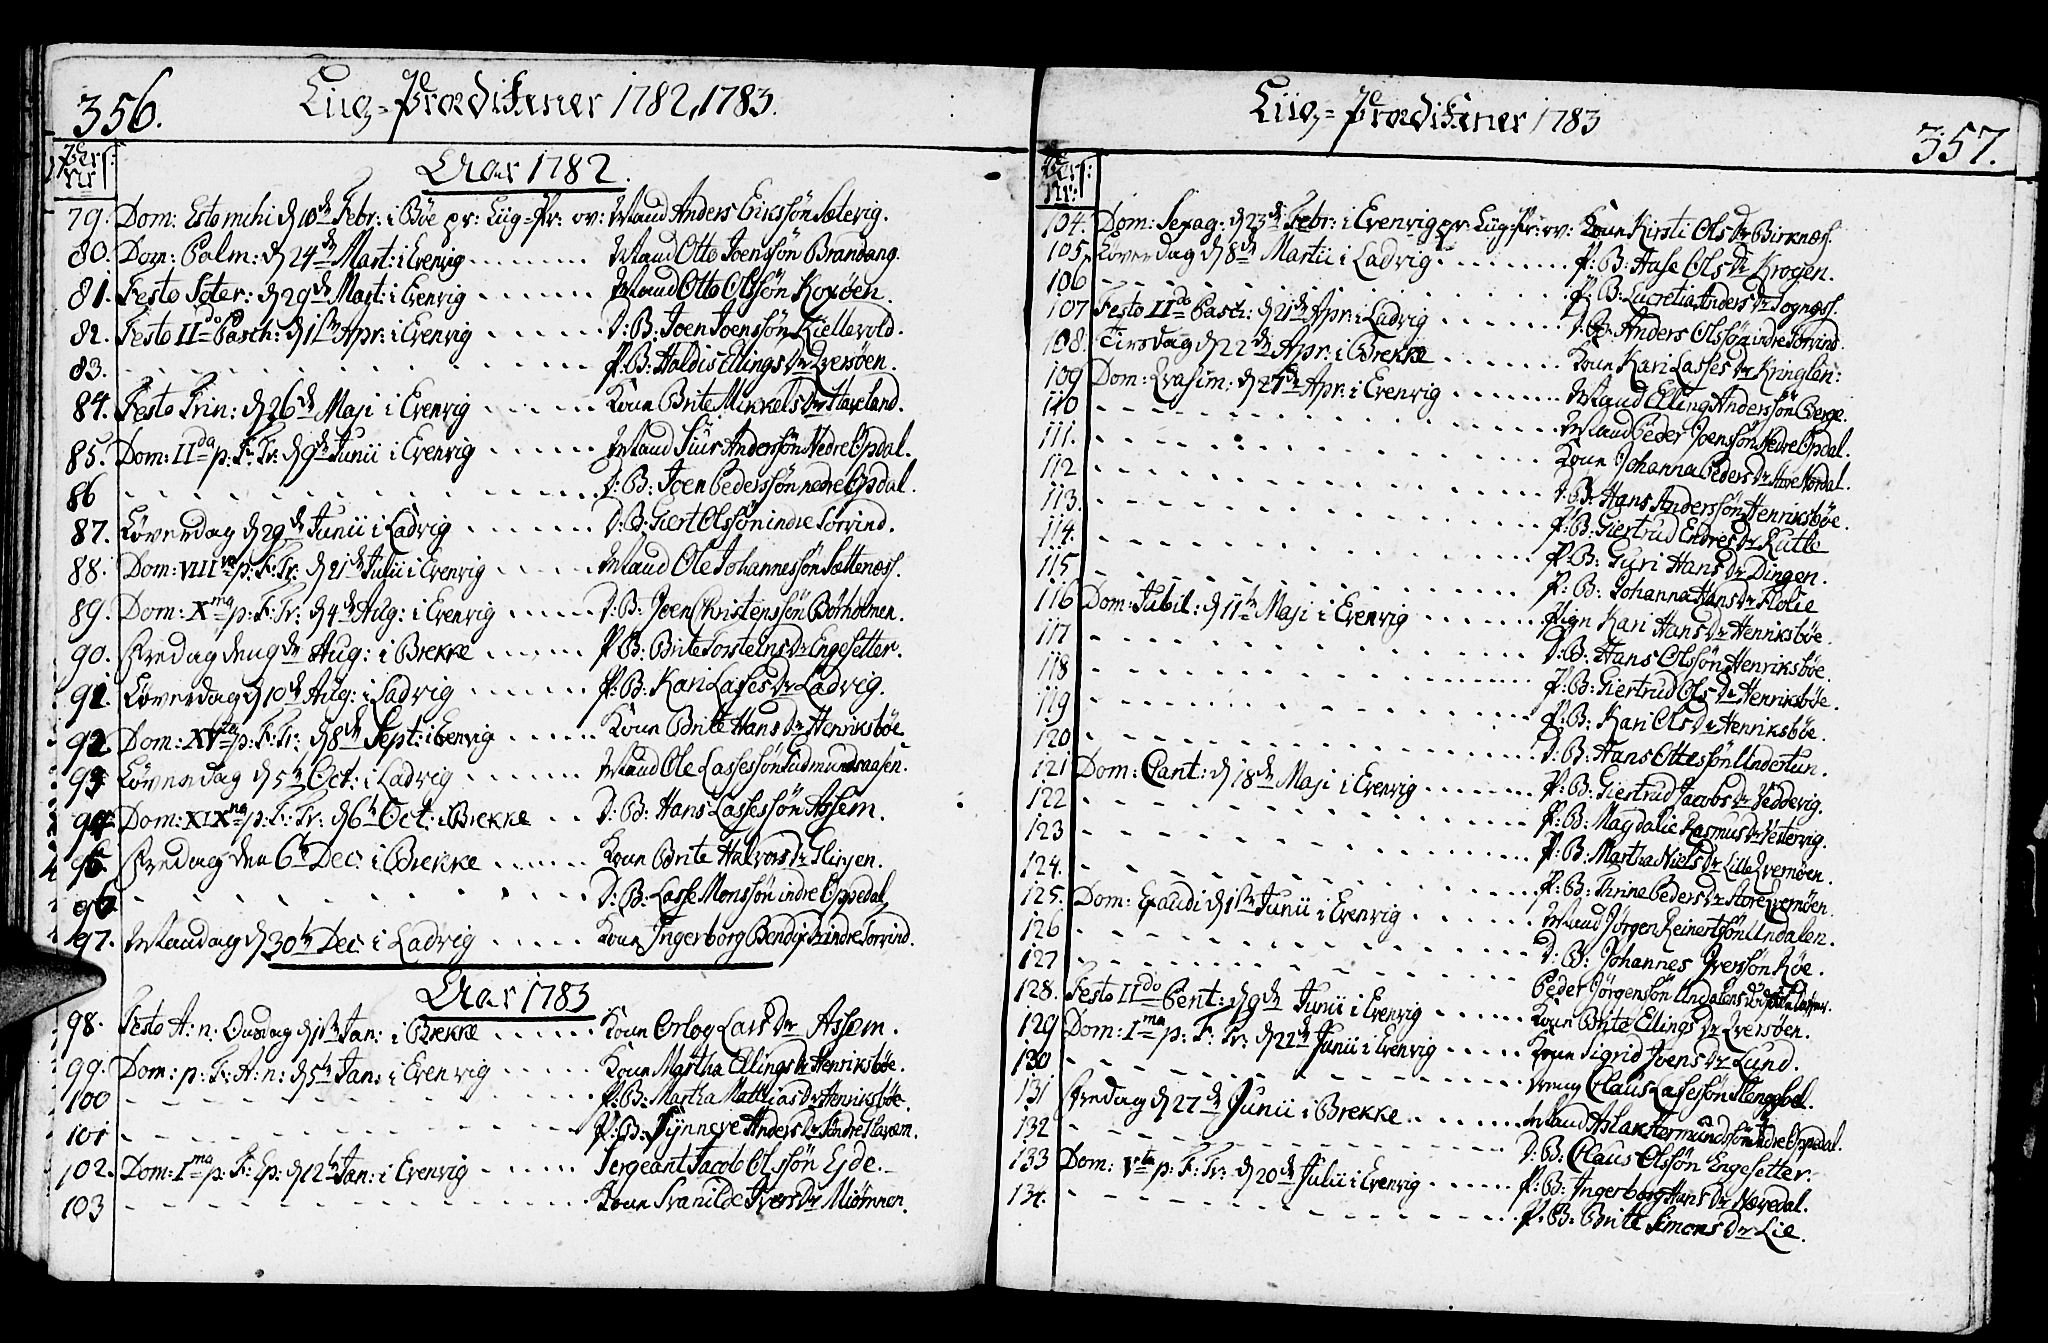 356.
Liig-Prædikener 1782, 1783.
Pers: Nr
Aar 1782.
79. Dom: Estomihi d 10de Febr: i Bøe pr: Liig-Pr: ov: Mand Anders Eirssøn Sæterig.
80. Dom: Palm: d 24de Mart: i Evenvig - - - Mand Otto Joenssøn Brandang.
81. Festo Soter: d 29de Mart: i Evenvig - - - Mand Otto Olssøn Koxøen.
82. Festo IIdo Pasch: d 1ste Apr: i Evenvig - - - D: B: Joen Joenssøn Kiellevold.
83. - - - P: B: Haldis Ellings Dr Qversøen.
84. Festo Trin: d 26de Maji i Evenvig - - - Koun Brite Mikkels Dr Haveland.
85. Dom: IIda p: F: Tr: d 9de Junii i Evenvig - - - Mand Siur Anderssøn Nedre Opdal.
86 - - - D: B: Joen Pederssøn nedre Opdal.
87. Løverdag d 29de Junii i Ladvig - - - D: B: Giert Olssøn indre Sørvind.
88. Dom: VIIIva p: F: Tr: d 21de Julii i Evenvig - - - Mand Ole Johannessøn Sættenæss.
89. Dom: Xma p: F: Tr: d 4de Aug: i Evenvig - - - D: B: Joen Christenssøn Børholmen.
90. Fredag den 9de Aug: i Brekke - - - P: B: Brite Torsteins Dr Engesetter.
91. Løverdag d 10de Aug: i Ladvig - - - P: B: Kari Lasses Dr Ladvig.
92. Dom: XVta p: F: Tr: d 8de Sept: i Evenvig - - - Koun Brite Hans Dr Henriksbøe
93. Løverdag d 5te Oct: i Ladvig - - - Mand Ole Lassessøn Gudmundsaasen.
94. Dom: XIXna p: F: Tr: d 6te Oct: i Brekke - - D: B: Hans Lassessøn Assem.
95. Fredag den 6te Dec: i Brekke - - - Koun Brite Halvors Dr
96. - - - D: B: Lasse Monssøn indre Oppedal
97. Mandag d 30te Dec: i Ladvig - - - Koun Ingerborg Bendix Dr indre Sørvind.
Aar 1783
98. Festo A: n: Onsdag d 1ste Jan: i Brekke - - - Koun Orlog Lars Dr Assem.
99. Dom: p: F: A: n: d 5te Jan: i Evenvig - - - Koun Martha Ellings Dr Henriksbøe.
100 - - - P: B: Martha Matthias Dr Henriksbøe.
101 - - - P: B: Synneve Anders Dr Søndre
102. Dom: Ima p: F: Ep: d 12te Jan: i Evenvig - - - Sergeant Jacob Olssøn Eyde.
103 - - - Koun Svanilde Ivers Dr Miømnen.
Liig-Prædikener 1783
357.
Pers: Nr:
104. Dom: Sexag: d 23de Febr: i Evenvig pr: Liig-Pr: ov: Koun Kirsti Ols Dr Birknæss.
105. Løverdag d 8de Martii i Ladvig - - - P: B: Aase Ols Dr Krogen.
106 - - - P: B: Lucretia Anders Dr Sognæss.
107 Festo IIdo Pasch: d 21de Apr: i Ladvig - - - D: B: Anders Olssøn indre Sørvind.
108. Tirsdag d 22de Apr: i Brekke - - - Koun Kari Lasses Dr Kringlen:
109 Dom: Qvasim: d 27de Apr: i Evenvig - - - Mand Elling Anderssøn Berge.
110 - - - Mand Peder Joenssøn Nedre Opdal.
111. - - - Koun Johanna Peders Dr Store Nordal.
112 - - - D: B: Hans Anderssøn Henriksbøe.
113. - - - P: B: Giertrud Endres Dr Rutle
114. - - - P: B: Guri Hans Dr Dingen.
115 - - - P: B: Johanna Hans Dr Flolie
116 Dom: Jubil: d 11te Maji i Evenvig - - - Pign Kari Hans Dr Henriksbøe.
117 - - - D: B: Hans Olssøn Henriksbøe.
118 - - - P: B: Giertrud Ols Dr Henriksbøe.
119 - - - P: B: Kari Ols Dr Henriksbøe.
120 - - - D: B: Hans Ottessøn Undertun.
121 Dom: Cant: d 18de Maji i Evenvig - - - P: B: Giertrud Jacobs Dr Veddevig.
122 - - - P: B: Magdalie Rasmus Dr Vestervig.
123 - - - P: B: Martha Niels Dr Lille Qvernøen.
124. - - - P: B: Thrine Peders Dr Store Qvernøen.
125. Dom: Exaudi d 1ste Junii i Evenvig - - - Mand Jørgen Reinertsøn Undalen.
126 - - - D: B: Johannes Iverssøn Røe.
127 - - - Peder Jørgensøn Undalens
128. Festo IIdo Pent: d 9de Junii i Evenvig - - - Koun Brite Ellings Dr Qversøen.
129 Dom: Ima p: F: Tr: d 22de Junii i Evenvig - - - Koun Sigrid Joens Dr Lund.
130 - - - Claus Lassessøn Stengebel.
131 Fredag d 27de Junii i Brekke - - - Mand Aslak Aamundssøn Indre Oppedal.
132 - - - D: B: Claus Olssøn Engesetter.
133 Dom: Vta p: F: Tr: d 20de Julii i Evenvig - - - P: B: Ingerborg Hans Dr Nævedal.
134. - - - P: B: Britte Simons Dr Lie.